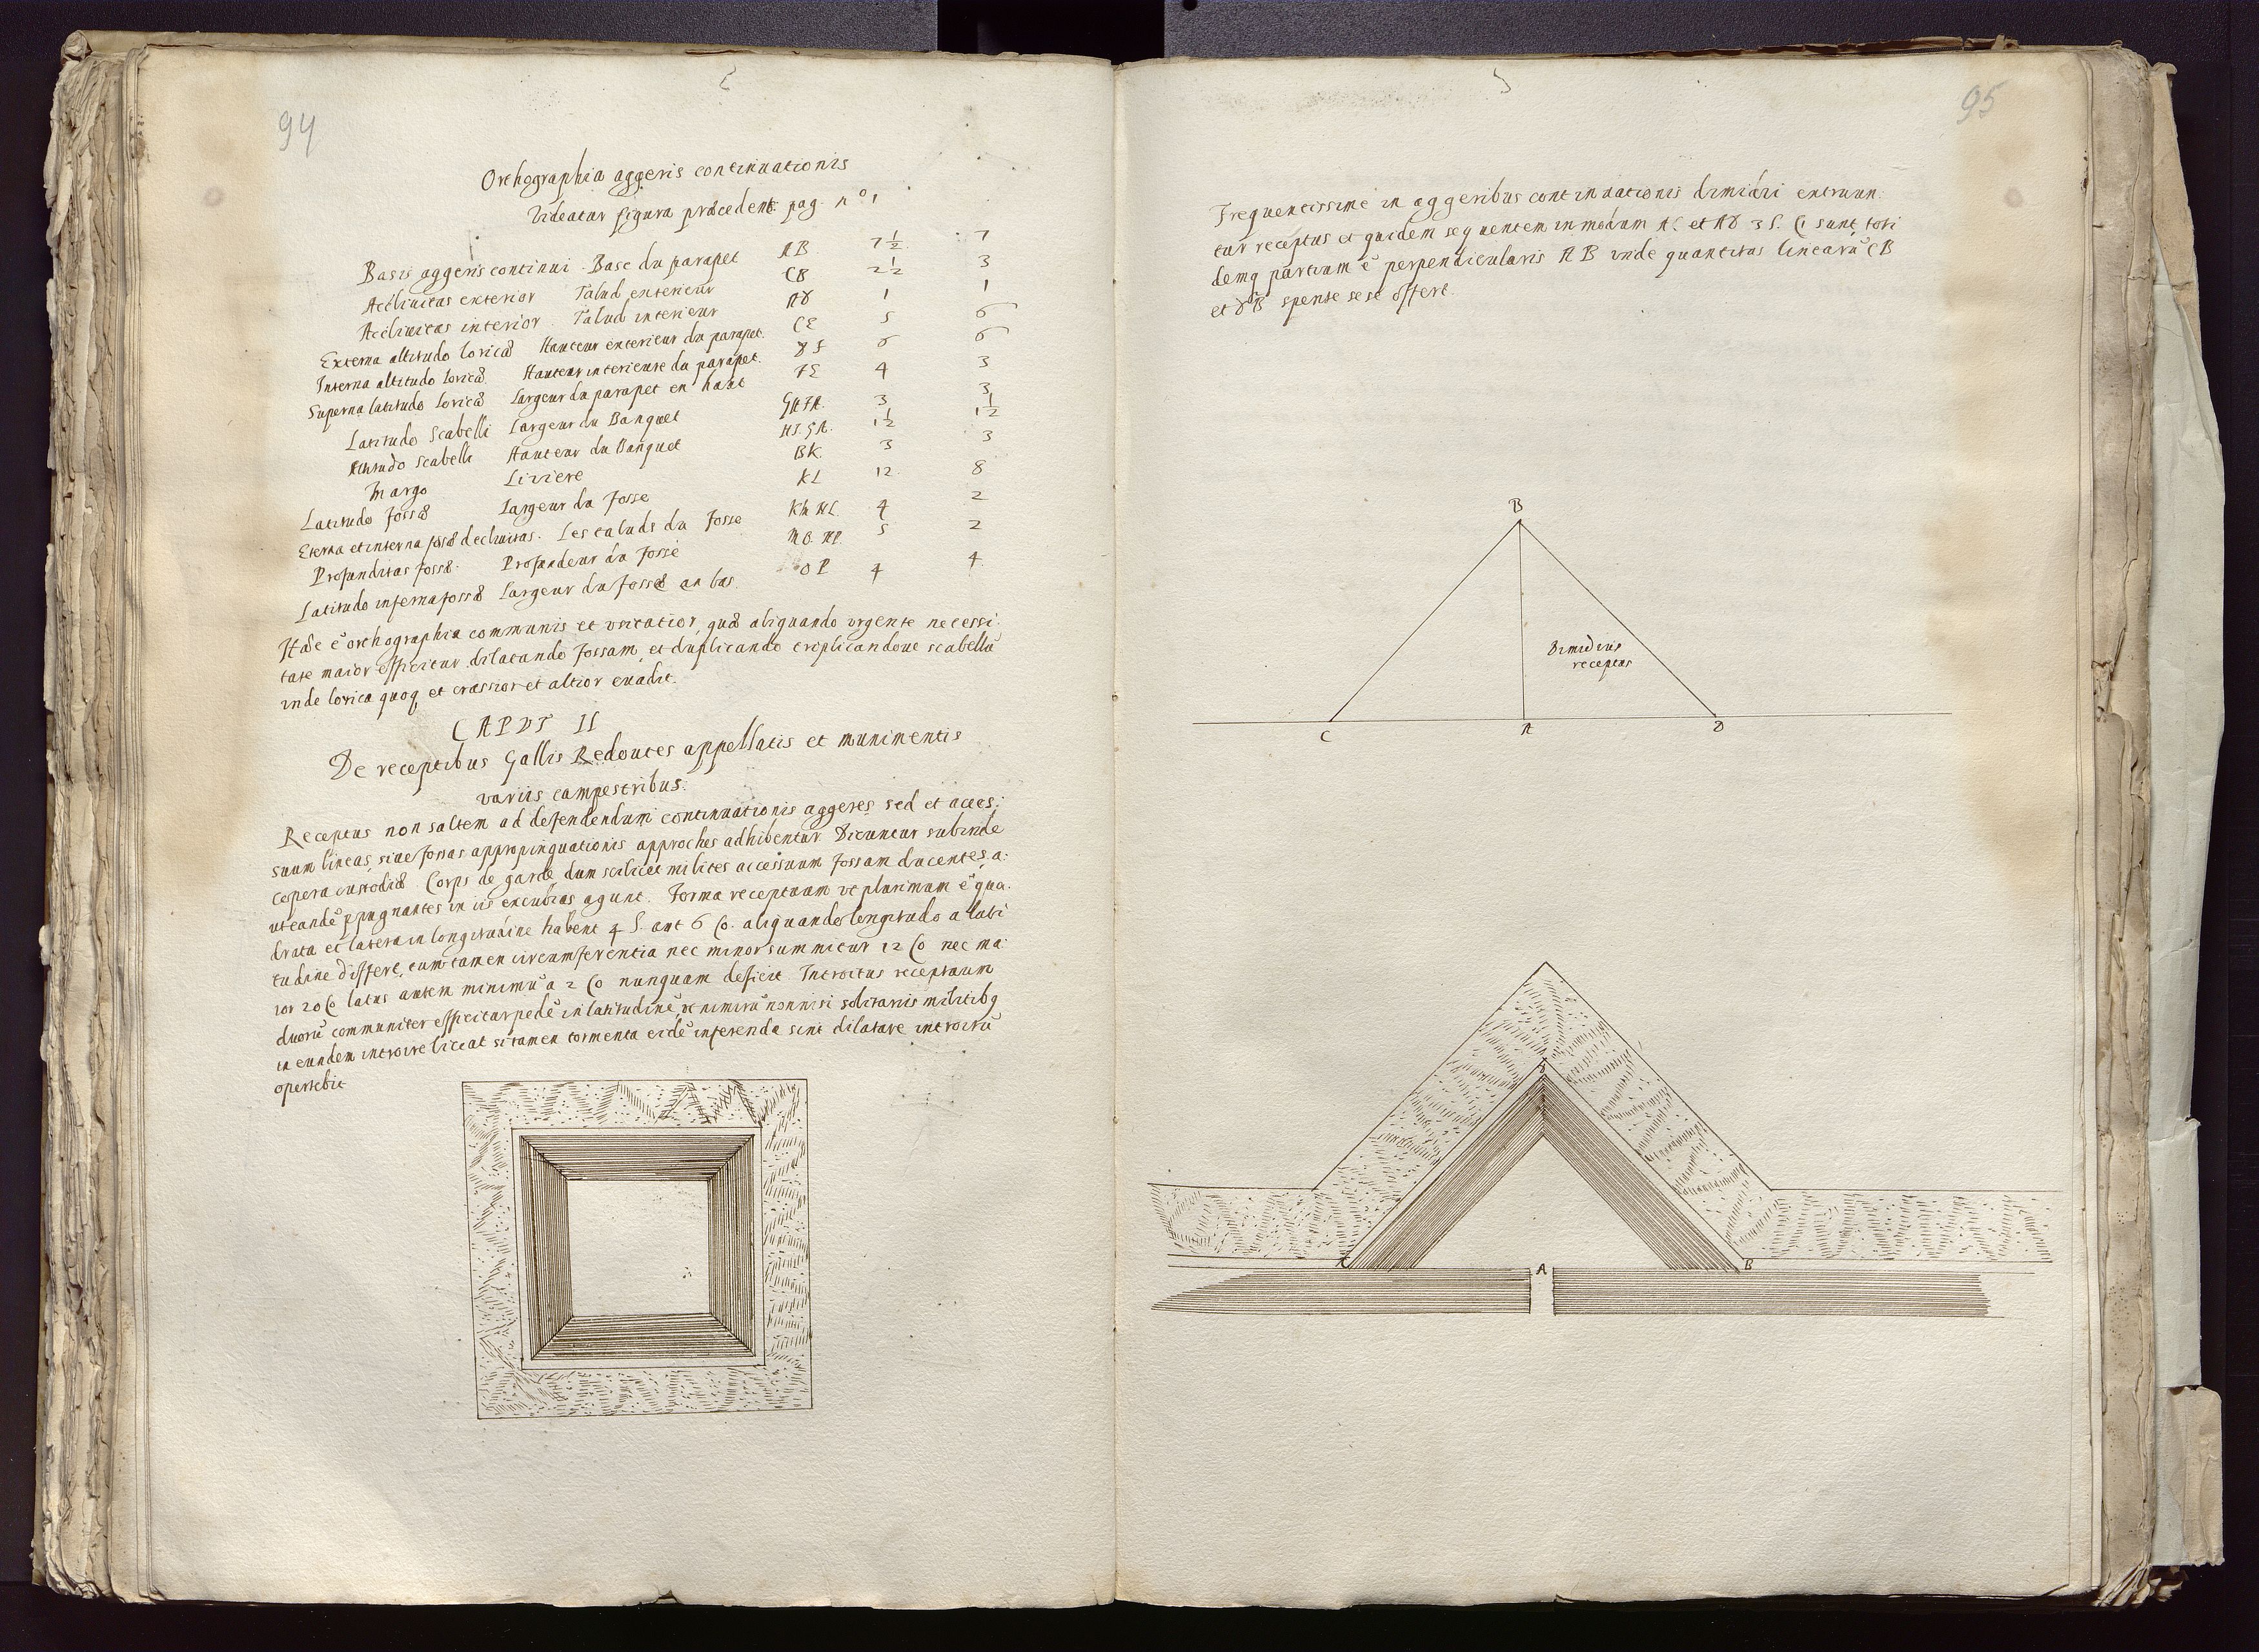 94
Orthographia aggeris continuationis
Videatur figura præcedent. pag. n° 1
Basis aggeris continui. Base du parapet AB 7 1/2 7
Acclivitas exterior Talud exterieur CB 2 1/2 3
Acclivitas interior Talud interieur AD 1 1
Externa altitudo loricæ Hauteur exterieur du parapet. CE 5 6
Interna altitudo loricæ Hauteur interieure du parapet. DF 6 6
Superna latitudo loricæ Largeur du parapet en haut FE 4 3
Latitudo Scabelli Largeur du Banquet GA FA. 3 3
Altitudo scabelli Hauteur du Banquet HI. GA. 1 1/2 1 1/2
Margo Liziere BK. 3 3
Latitudo fossæ Largeur du fosse KL 12 8
Eterna et interna fossæ declivitas. Les taluds du fosse KM NL 4 2
Profunditas fossæ. Profundeur du fosse MO. NP. 5 2
Latitudo inferna fossæ Largeur du fosse au bas. OP 4 4
Hæc ē orthographia communis et usitatior, quæ aliquando urgente necessi:
tate maior efficitur dilatando fossam, et duplicando triplicandoue scabellū
inde lorica quoq, et crassior et altior evadit.
CAPVT II
De receptibus Gallis Redoutes appellatis et munimentis
variis campestribus.
Receptus non saltem ad defendendum continuationis aggeres sed et acces:
suum lineas, siue fossas appropinquationis approches adhibentur. Dicuntur subinde
cepera custodiæ Corps de garde dum scilicet milites accessuum fossam ducentes, a:
uteandē ppugnantes in iis excubias agunt. Forma receptuum ut plurimum ē qua:
drata et latera in longitudine habent 4 S. aut 6 C°. aliquando longitudo a lati
tudine differt, cum tamen circumferentia nec minor summitur 12 C° nec ma:
ior 20 C° latus autem minimū a 2 C° nunquam deficit. Introitus receptuum
duorū communiter efficitur pedū in latitudinē, ut nimirū nonnisi solitariis militibq
in eundem introire liceat si tamen tormenta eidē inferenda sint dilatare introitū
oportebit
95
Frequentissime in aggeribus continuationis dimidii extruun:
tur receptus et quidem sequentem in modum AC et AD 3 S. C1 sunt, toti
demq partium ē perpendicularis AB unde quantitas linearū CB
et DB spente sese offert.
B
Dimidius
receptus
C A D
D
C A B